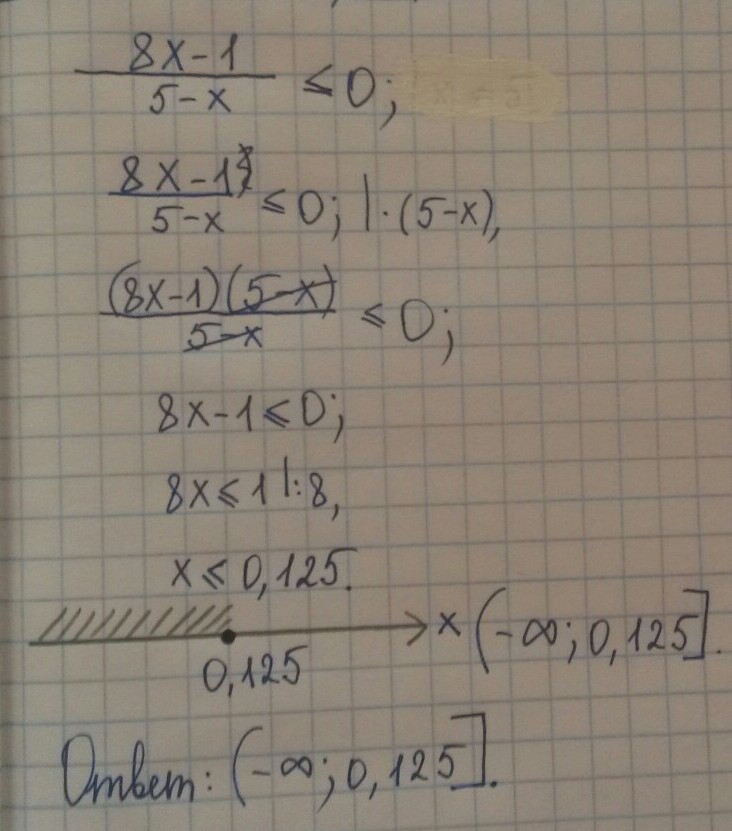 (8x-1)/(5-x) ≤ 0;
(8x-1)/(5-x) ≤ 0; |·(5-x),
(8x-1)(5-x)/(5-x) ≤ 0;
8x-1 ≤ 0;
8x ≤ 1 |:8,
x ≤ 0,125.
x (-∞; 0,125].
0,125
Ответ: (-∞; 0,125].